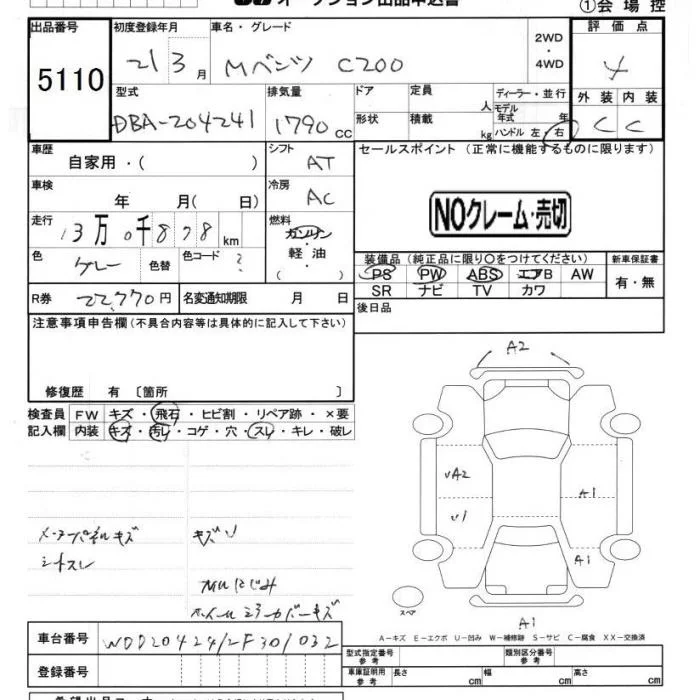 オークション出品申込書
①会場控
出品番号
5110
初度登録年月
21 3 月
車名・グレード
Mベンツ C200
2WD
・
4WD
評価点
4
外装 内装
C C
型式
DBA-204241
排気量
1790 cc
ドア
定員
人
形状
積載
kg
ディーラー・並行
モデル
年式 年
ハンドル 左・右
車歴
自家用・( )
シフト
AT
セールスポイント (正常に機能するものに限ります)
NOクレーム・売切
車検
年 月( 日)
冷房
AC
走行
13万0千878 km
燃料
ガソリン
軽油
( )
色
グレー
色替
色コード
?
装備品 (純正品に限り○をつけてください)
PS PW ABS エアB AW
SR ナビ TV カワ
新車保証書
有・無
R券
22,770円
名変通知期限
月 日
後日品
注意事項申告欄 (不具合内容等は具体的に記入して下さい)
修復歴 有 〔箇所 〕
検査員
記入欄
FW キズ・飛石・ヒビ割・リペア跡・×要
内装 キズ・汚レ・コゲ・穴・スレ・キレ・破レ
A2
A2
A1
A1
A1
スペア
メーターパネルキズ
シートスレ
キズU
ホイールミラーカバーキズ
A－キズ E－エクボ U－凹み W－補修跡 S－サビ C－腐食 XX－交換済
車台番号
WDD2042412F301032
登録番号
型式指定番号
参考
類別区分番号
参考
車庫証明用
参考
長さ cm
幅 cm
高さ cm